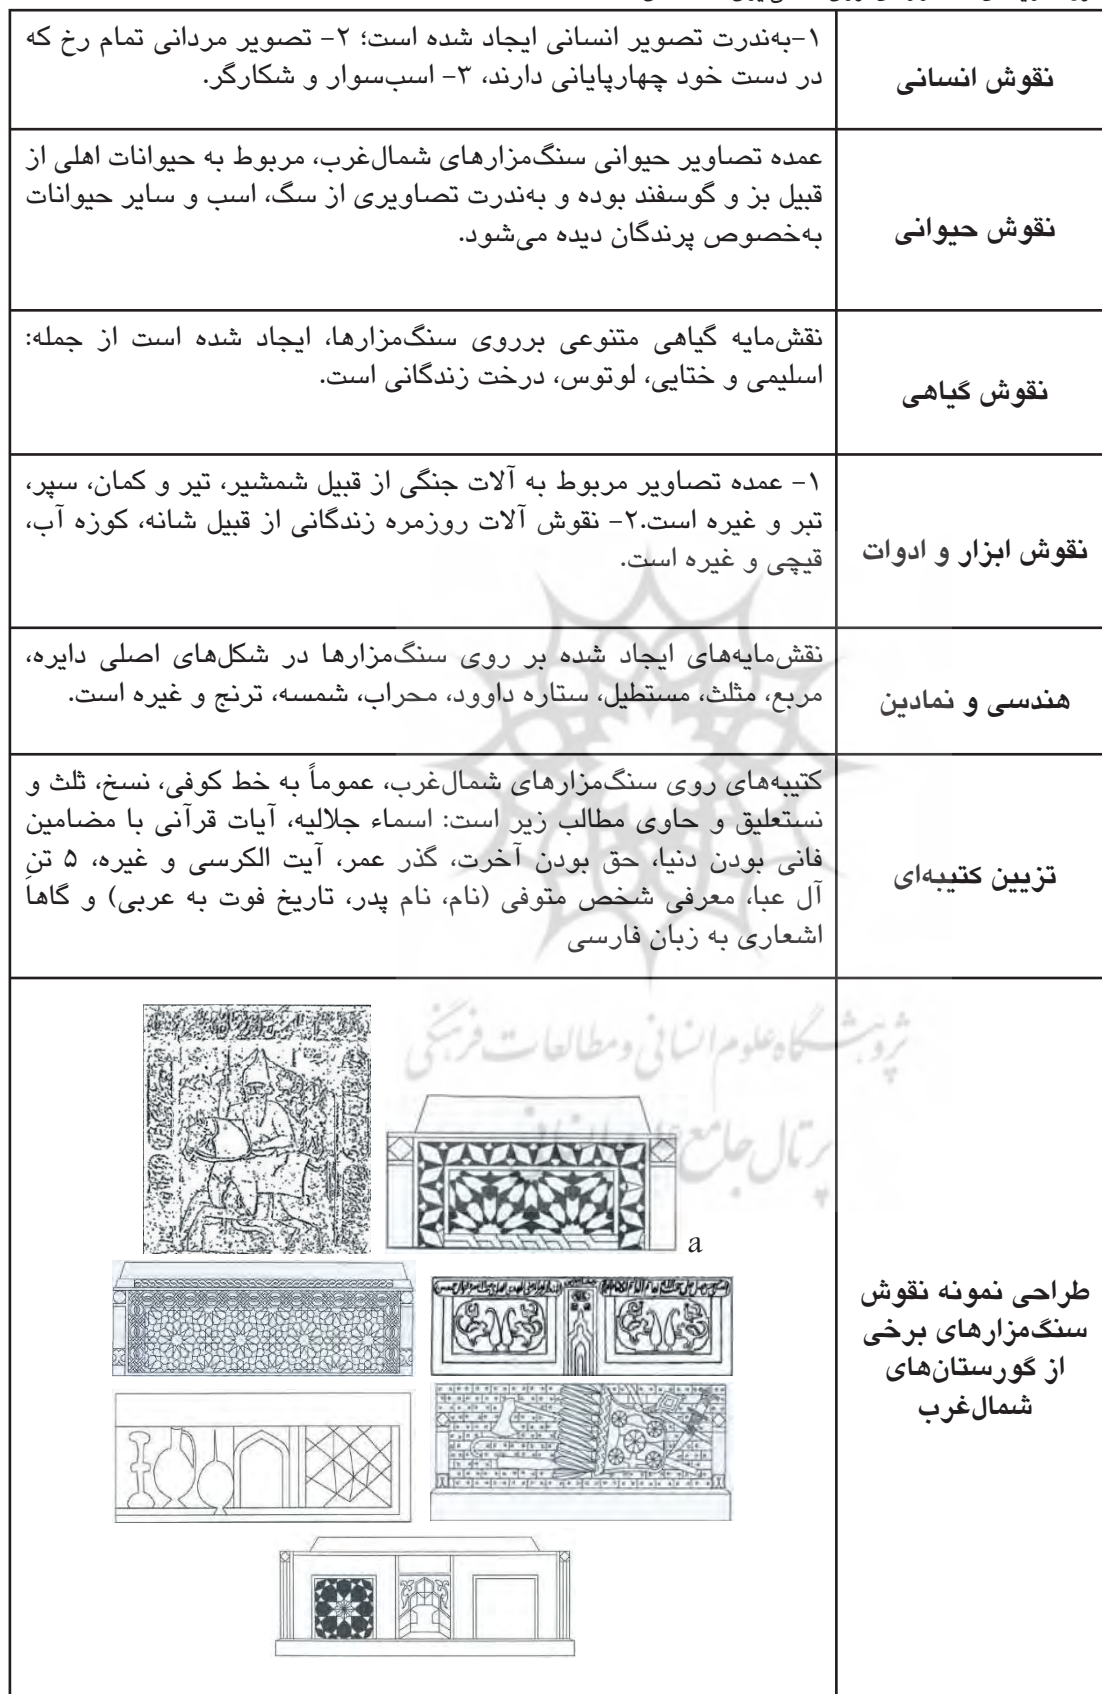 نقوش انسانی
۱-به‌ندرت تصویر انسانی ایجاد شده است؛ ۲- تصویر مردانی تمام رخ که
در دست خود چهارپایانی دارند، ۳- اسب‌سوار و شکارگر.
نقوش حیوانی
عمده تصاویر حیوانی سنگ‌مزارهای شمال‌غرب، مربوط به حیوانات اهلی از
قبیل بز و گوسفند بوده و به‌ندرت تصاویری از سگ، اسب و سایر حیوانات
به‌خصوص پرندگان دیده می‌شود.
نقوش گیاهی
نقش‌مایه گیاهی متنوعی برروی سنگ‌مزارها، ایجاد شده است از جمله:
اسلیمی و ختایی، لوتوس، درخت زندگانی است.
نقوش ابزار و ادوات
۱- عمده تصاویر مربوط به آلات جنگی از قبیل شمشیر، تیر و کمان، سپر،
تبر و غیره است.۲- نقوش آلات روزمره زندگانی از قبیل شانه، کوزه آب،
قیچی و غیره است.
هندسی و نمادین
نقش‌مایه‌های ایجاد شده بر روی سنگ‌مزارها در شکل‌های اصلی دایره،
مربع، مثلث، مستطیل، ستاره داوود، محراب، شمسه، ترنج و غیره است.
تزیین کتیبه‌ای
کتیبه‌های روی سنگ‌مزارهای شمال‌غرب، عموماً به خط کوفی، نسخ، ثلث و
نستعلیق و حاوی مطالب زیر است: اسماء جلالیه، آیات قرآنی با مضامین
فانی بودن دنیا، حق بودن آخرت، گذر عمر، آیت الکرسی و غیره، ۵ تن
آل عبا، معرفی شخص متوفی (نام، نام پدر، تاریخ فوت به عربی) و گاهاً
اشعاری به زبان فارسی
پژوهشگاه علوم انسانی و مطالعات فرهنگی
پرتال جامع علوم انسانی
a
طراحی نمونه نقوش
سنگ‌مزارهای برخی
از گورستان‌های
شمال‌غرب